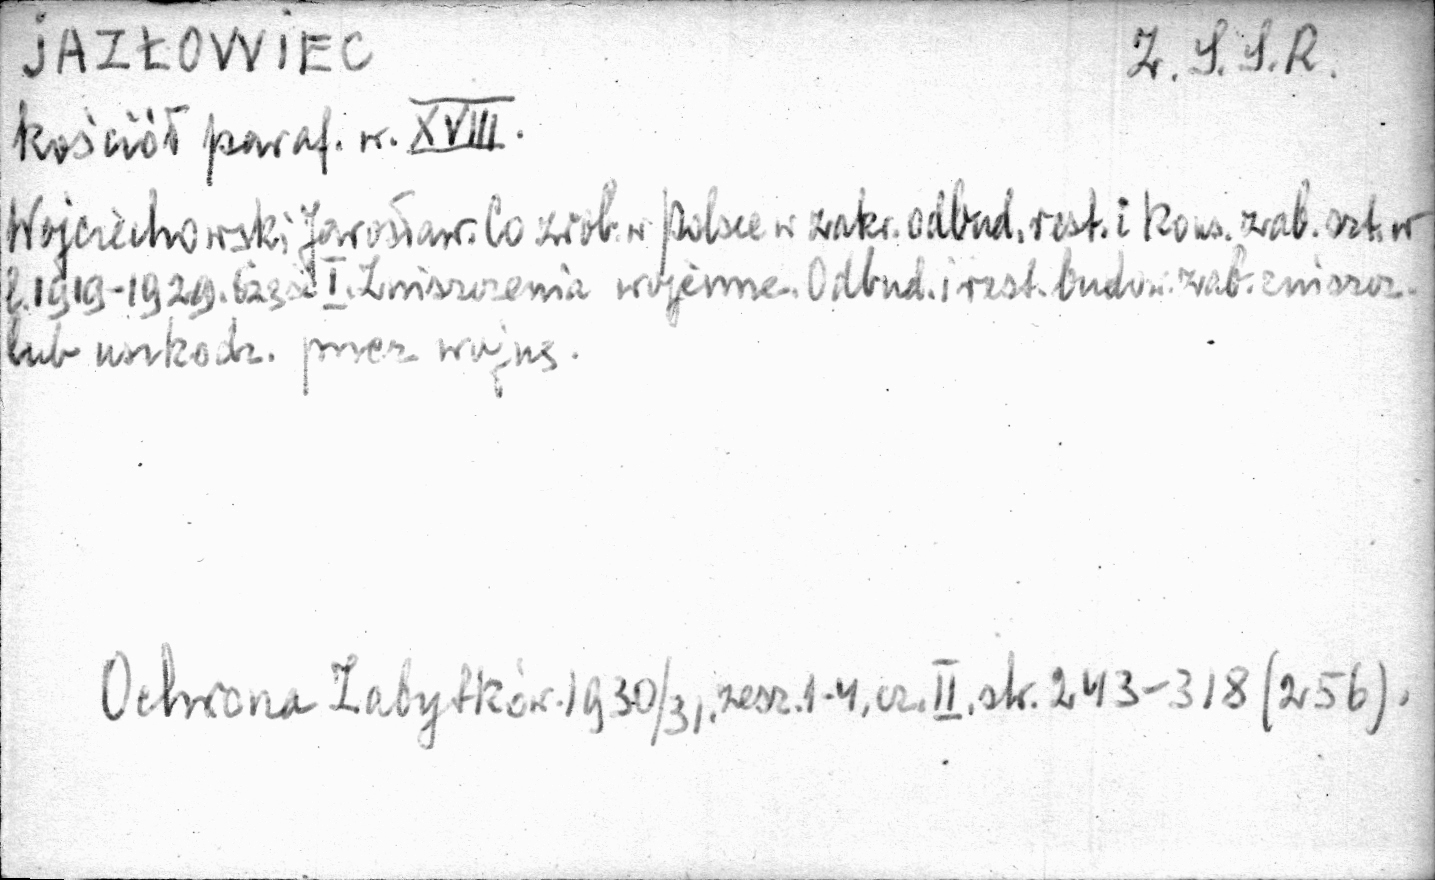 JAZŁOWIEC
Z. S. S. R.
kościół paraf. w. XVIII.
Wojciechowski Jarosław. Co zrob. w Polsce w zakr. odbud., rest. i kons. zab. szt. w
l. 1919-1929. Część I. Zniszczenia wojenne. Odbud. i rest. budow. zab. zniszcz.
lub uszkodz. przez wojnę.
Ochrona Zabytków. 1930/31, zesz. 1-4, cz. II, str. 243-318 (256).